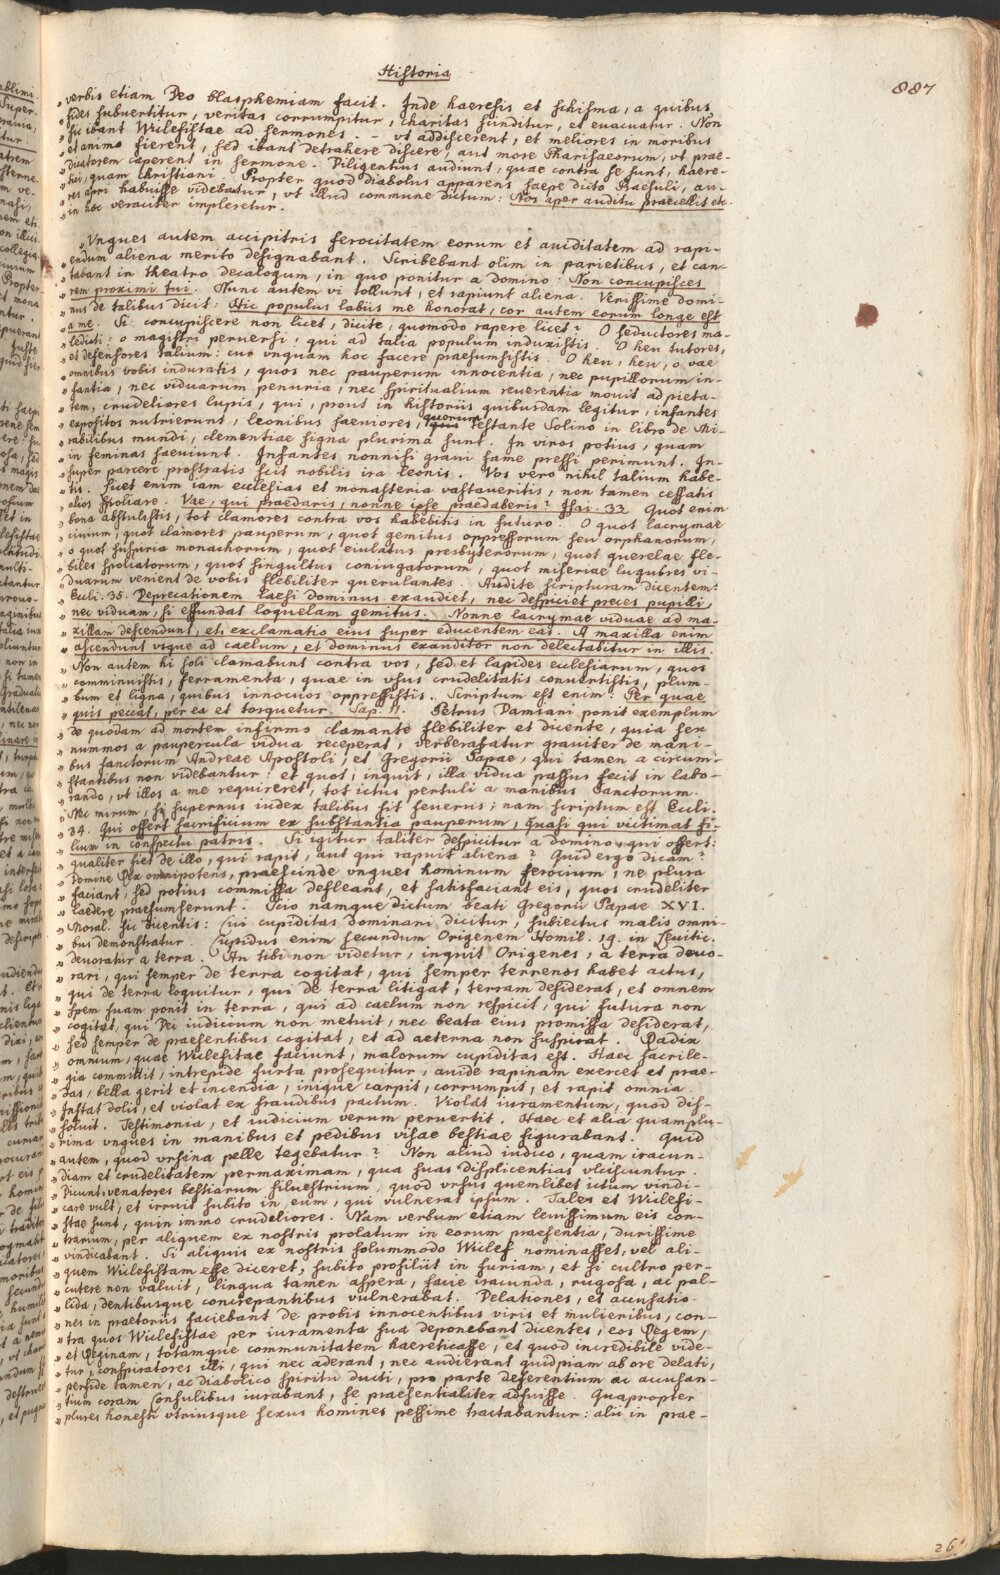 Historia
887
„ verbis etiam Deo blasphemiam facit. Inde haeresis et schisma, a quibus
„ fides subuertitur, veritas corrumpitur, charitas scinditur, et euacuatur. Non
„ sic ibant Wiclefistae ad sermones. – vt addiscerent, et meliores in moribus
„ et animo fierent, sed ibant detrahere discere, aut more Pharisaeorum, vt prae-
„ dicatorem caperent in sermone. Diligentius audiunt, quae contra se sunt, haere-
„ tici, quam christiani. Propter quod diabolus apparens saepe dicto Praesuli, au-
„ res apri habuisse videbatur, vt illud commune dictum: Nos aper auditu praecellit etc.
„ in hoc veraciter impleretur.
„ Vngues autem accipitris ferocitatem eorum et auiditatem ad rapi-
„ endum aliena merito designabant. Scribebant olim in parietibus, et can-
„ tabant in theatro decalogum, in quo ponitur a domino: Non concupisces
„ rem proximi tui. Nunc autem vi tollunt, et rapiunt aliena. Verissime domi-
„ nus de talibus dicit: Hic populus labiis me honorat, cor autem eorum longe est
„ a me. Si concupiscere non licet, dicite, quomodo rapere licet? O seductores ma-
„ ledicti, o magistri peruersi, qui ad talia populum induxistis. O heu tutores,
„ et defensores talium: cur vnquam hoc facere praesumsistis. O heu, heu, o vae
„ omnibus vobis induratis, quos nec pauperum innocentia, nec pupillorum in-
„ fantia, nec viduarum penuria, nec spiritualium reuerentia mouit ad pieta-
„ tem, crudeliores lupis, qui, prout in historiis quibusdam legitur, infantes
„ expositos nutrierunt, leonibus saeuiores, quorum testante Solino in libro de Mi-
„ rabilibus mundi, clementiae signa plurima sunt. In viros potius, quam
„ in feminas saeuiunt. Infantes nonnisi graui fame pressi perimunt. In-
„ super parcere prostratis scit nobilis ira leonis. Vos vero nihil talium habe-
„ tis. Licet enim iam ecclesias et monasteria vastaueritis, non tamen cessatis
„ alios spoliare. Vae, qui praedaris, nonne ipse praedaberis? Isai. 33. Quot enim
„ bona abstulistis, tot clamores contra vos habebitis in futuro. O quot lacrymae
„ ciuium, quot clamores pauperum, quot gemitus oppressorum seu orphanorum,
„ o quot suspiria monachorum, quot eiulatus presbyterorum, quot querelae fle-
„ biles spoliatorum, quot singultus coniugatorum, quot miseriae lugubres vi-
„ duarum venient de vobis flebiliter querulantes. Audite scripturam dicentem:
„ Eccli. 35. Deprecationem laesi dominus exaudiet, nec despiciet preces pupilli,
„ nec viduam, si effundat loquelam gemitus. Nonne lacrymae viduae ad ma-
„ xillam descendunt, et exclamatio eius super educentem eas. A maxilla enim
„ ascendunt vsque ad caelum, et dominus exauditor non delectabitur in illis.
„ Non autem hi soli clamabunt contra vos, sed et lapides ecclesiarum, quos
„ comminuistis, ferramenta, quae in vsus crudelitatis conuertistis, plum-
„ bum et ligna, quibus innocuos oppressistis. Scriptum est enim: Per quae
„ quis peccat, per ea et torquetur. Sap. 11. Petrus Damiani ponit exemplum
„ de quodam ad mortem infirmo clamante flebiliter et dicente, quia sex
„ nummos a paupercula vidua receperat, verberabatur grauiter de mani-
„ bus sanctorum Andreae Apostoli, et Gregorii Papae, qui tamen a circum-
„ stantibus non videbantur: et quot, inquit, illa vidua passus fecit in labo-
„ rando, vt illos a me requireret, tot ictus pertuli a manibus Sanctorum.
„ Nec mirum, si supernus iudex talibus sit seuerus; nam scriptum est Eccli.
„ 34. Qui offert sacrificium ex substantia pauperum, quasi qui victimat fi-
„ lium in conspectu patris. Si igitur taliter despicitur a domino, qui offert:
„ qualiter fiet de illo, qui rapit, aut qui rapuit aliena? Quid ergo dicam?
„ Domine Rex omnipotens, praescinde vngues hominum ferocium, ne plura
„ faciant, sed potius commissa defleant, et satisfaciant eis, quos crudeliter
„ laedere praesumserunt. Scio namque dictum beati Gregorii Papae XVI.
„ Moral. sic dicentis: Cui cupiditas dominari dicitur, subiectus malis omni-
„ bus demonstratur. Cupidus enim secundum Origenem Homil. 19. in Leuitic.
„ deuoratur a terra. An tibi non videtur, inquit Origenes, a terra deuo-
„ rari, qui semper de terra cogitat, qui semper terrenos habet actus,
„ qui de terra loquitur, qui de terra litigat, terram desiderat, et omnem
„ spem suam ponit in terra, qui ad caelum non respicit, qui futura non
„ cogitat, qui Dei iudicium non metuit, nec beata eius promissa desiderat,
„ sed semper de praesentibus cogitat, et ad aeterna non suspirat. Radix
„ omnium, quae Wiclefitae faciunt, malorum cupiditas est. Haec sacrile-
„ gia committit, intrepide furta prosequitur, auide rapinam exercet et prae-
„ das, bella gerit et incendia, inique carpit, corrumpit, et rapit omnia.
„ Instat dolis, et violat ex fraudibus pactum. Violat iuramentum, quod dis-
„ soluit. Testimonia, et iudicium verum peruertit. Haec et alia quamplu-
„ rima vngues in manibus et pedibus visae bestiae figurabant. Quid
„ autem, quod vrsina pelle tegebatur? Non aliud iudico, quam iracun-
„ diam et crudelitatem permaximam, qua suas displicentias vlciscuntur.
„ Dicunt venatores bestiarum siluestrium, quod vrsus quemlibet ictum vindi-
„ care vult, et irruit subito in eum, qui vulnerat ipsum. Tales et Wiclefi-
„ stae sunt, quin immo crudeliores. Nam verbum etiam leuissimum eis con-
„ trarium, per aliquem ex nostris prolatum in eorum praesentia, durissime
„ vindicabant. Si aliquis ex nostris solummodo Wiclef nominasset, vel ali-
„ quem Wiclefistam esse diceret, subito prosiliit in furiam, et si cultro per-
„ cutere non valuit, lingua tamen aspera, facie iracunda, rugosa, ac pal-
„ lida, dentibusque concrepantibus vulnerabat. Delationes, et accusatio-
„ nes in praetoriis faciebant de probis innocentibus viris et mulieribus, con-
„ tra quos Wiclefistae per iuramenta sua deponebant dicentes, eos Regem,
„ et Reginam, totamque communitatem haereticasse, et quod incredibile vide-
„ tur, conspiratores illi, qui nec aderant, nec audierant quidpiam ab ore delati,
„ perfide tamen, ac diabolico spiritu ducti, pro parte deferentium ac accusan-
„ tium coram Consulibus iurabant, se praesentialiter adfuisse. Quapropter
„ plures honesti vtriusque sexus homines pessime tractabantur: alii in prae-